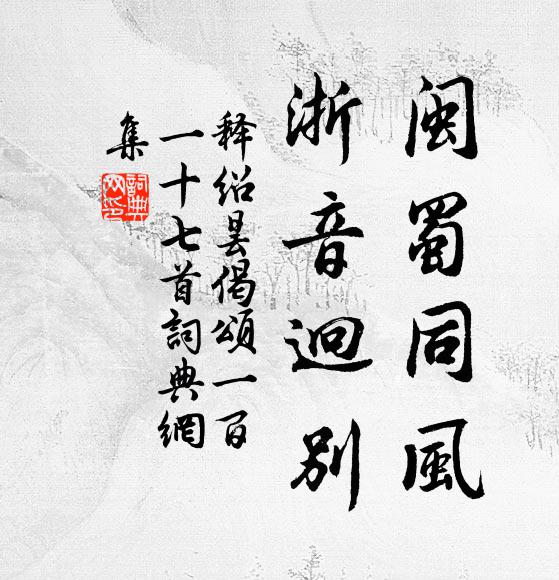 閩蜀同風
浙音迥別
释绍昙偈頌一百
一十七首詞典網
集
詞典
网印